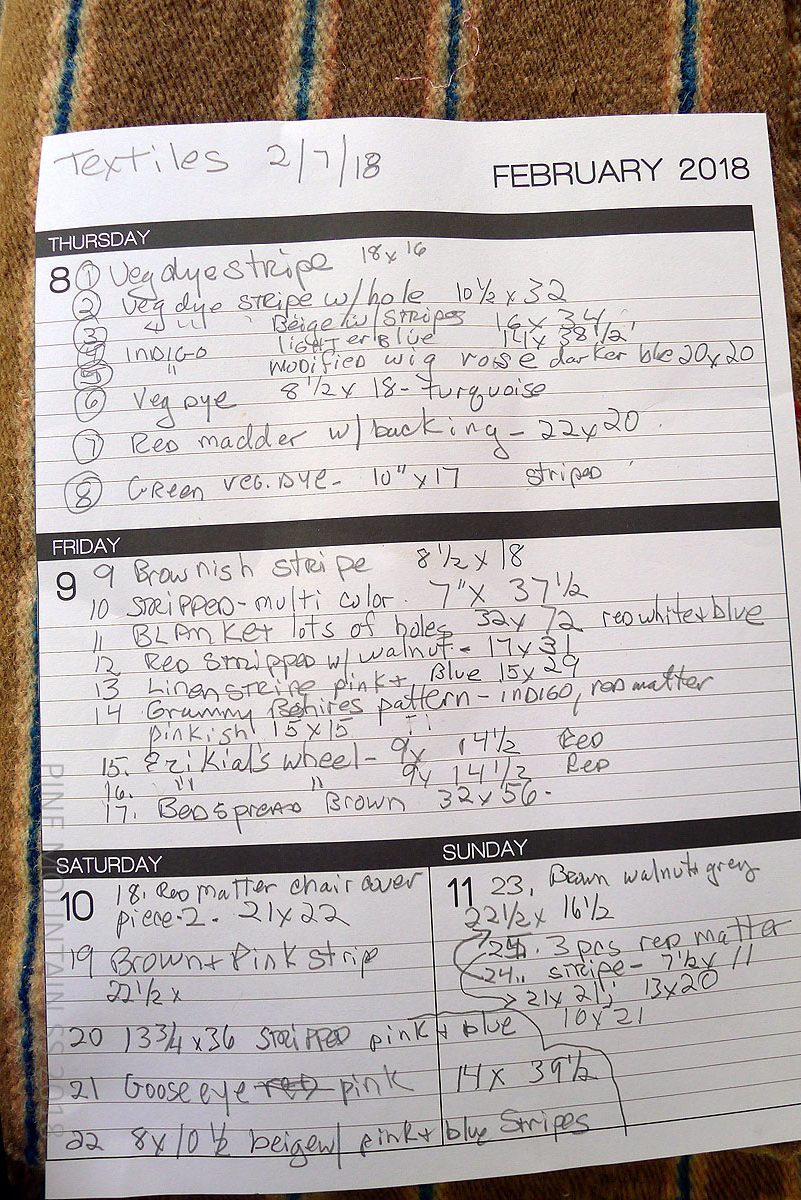 Textiles 2/7/18
FEBRUARY 2018
THURSDAY
8 1 Veg dye stripe 18x16
2 Veg dye stripe w/hole 10 1/2 x 32
3 " " Beige w/ stripes 16 x 34
4 INDIGO lighter Blue 14x 38 1/2"
5 " modified wig rose darker blue 20x20
6 Veg Dye 8 1/2 x 18- turquoise
7 Red madder w/backing - 22x20.
8 Green veg. Dye- 10" x 17 striped
FRIDAY
9 9 Brownish stripe 8 1/2 x 18
10 Stripped-multi color. 7" x 37 1/2
11 BLANKet lots of holes 32x 72 red white + blue
12 Red stripped w/ walnut - 17 x 31
13 Linen stripe pink + Blue 15x29
14 Grammy Behires pattern - INDIGO, red matter
pinkish 15x15
15. Ezikial's wheel- 9x 14 1/2 Red
16. " " 9x 14 1/2 Red
17. Bedspread Brown 32x56-
SATURDAY
10 18. Red matter chair cover
piece-2. 21x22
19 Brown + Pink strip
22 1/2 x
20 13 3/4 x36 Stripped pink + blue
21 Goose eye red pink 14 x 39 1/2
22 8x10 1/2 beige w/ pink + blue Stripes
SUNDAY
11 23. Brown walnut + grey
22 1/2 x 16 1/2
24. 3 pcs red matter
24.. stripe- 7 1/2 x 11
21x21; 13x20
10x21
PINE MOUNTAIN SS 2018